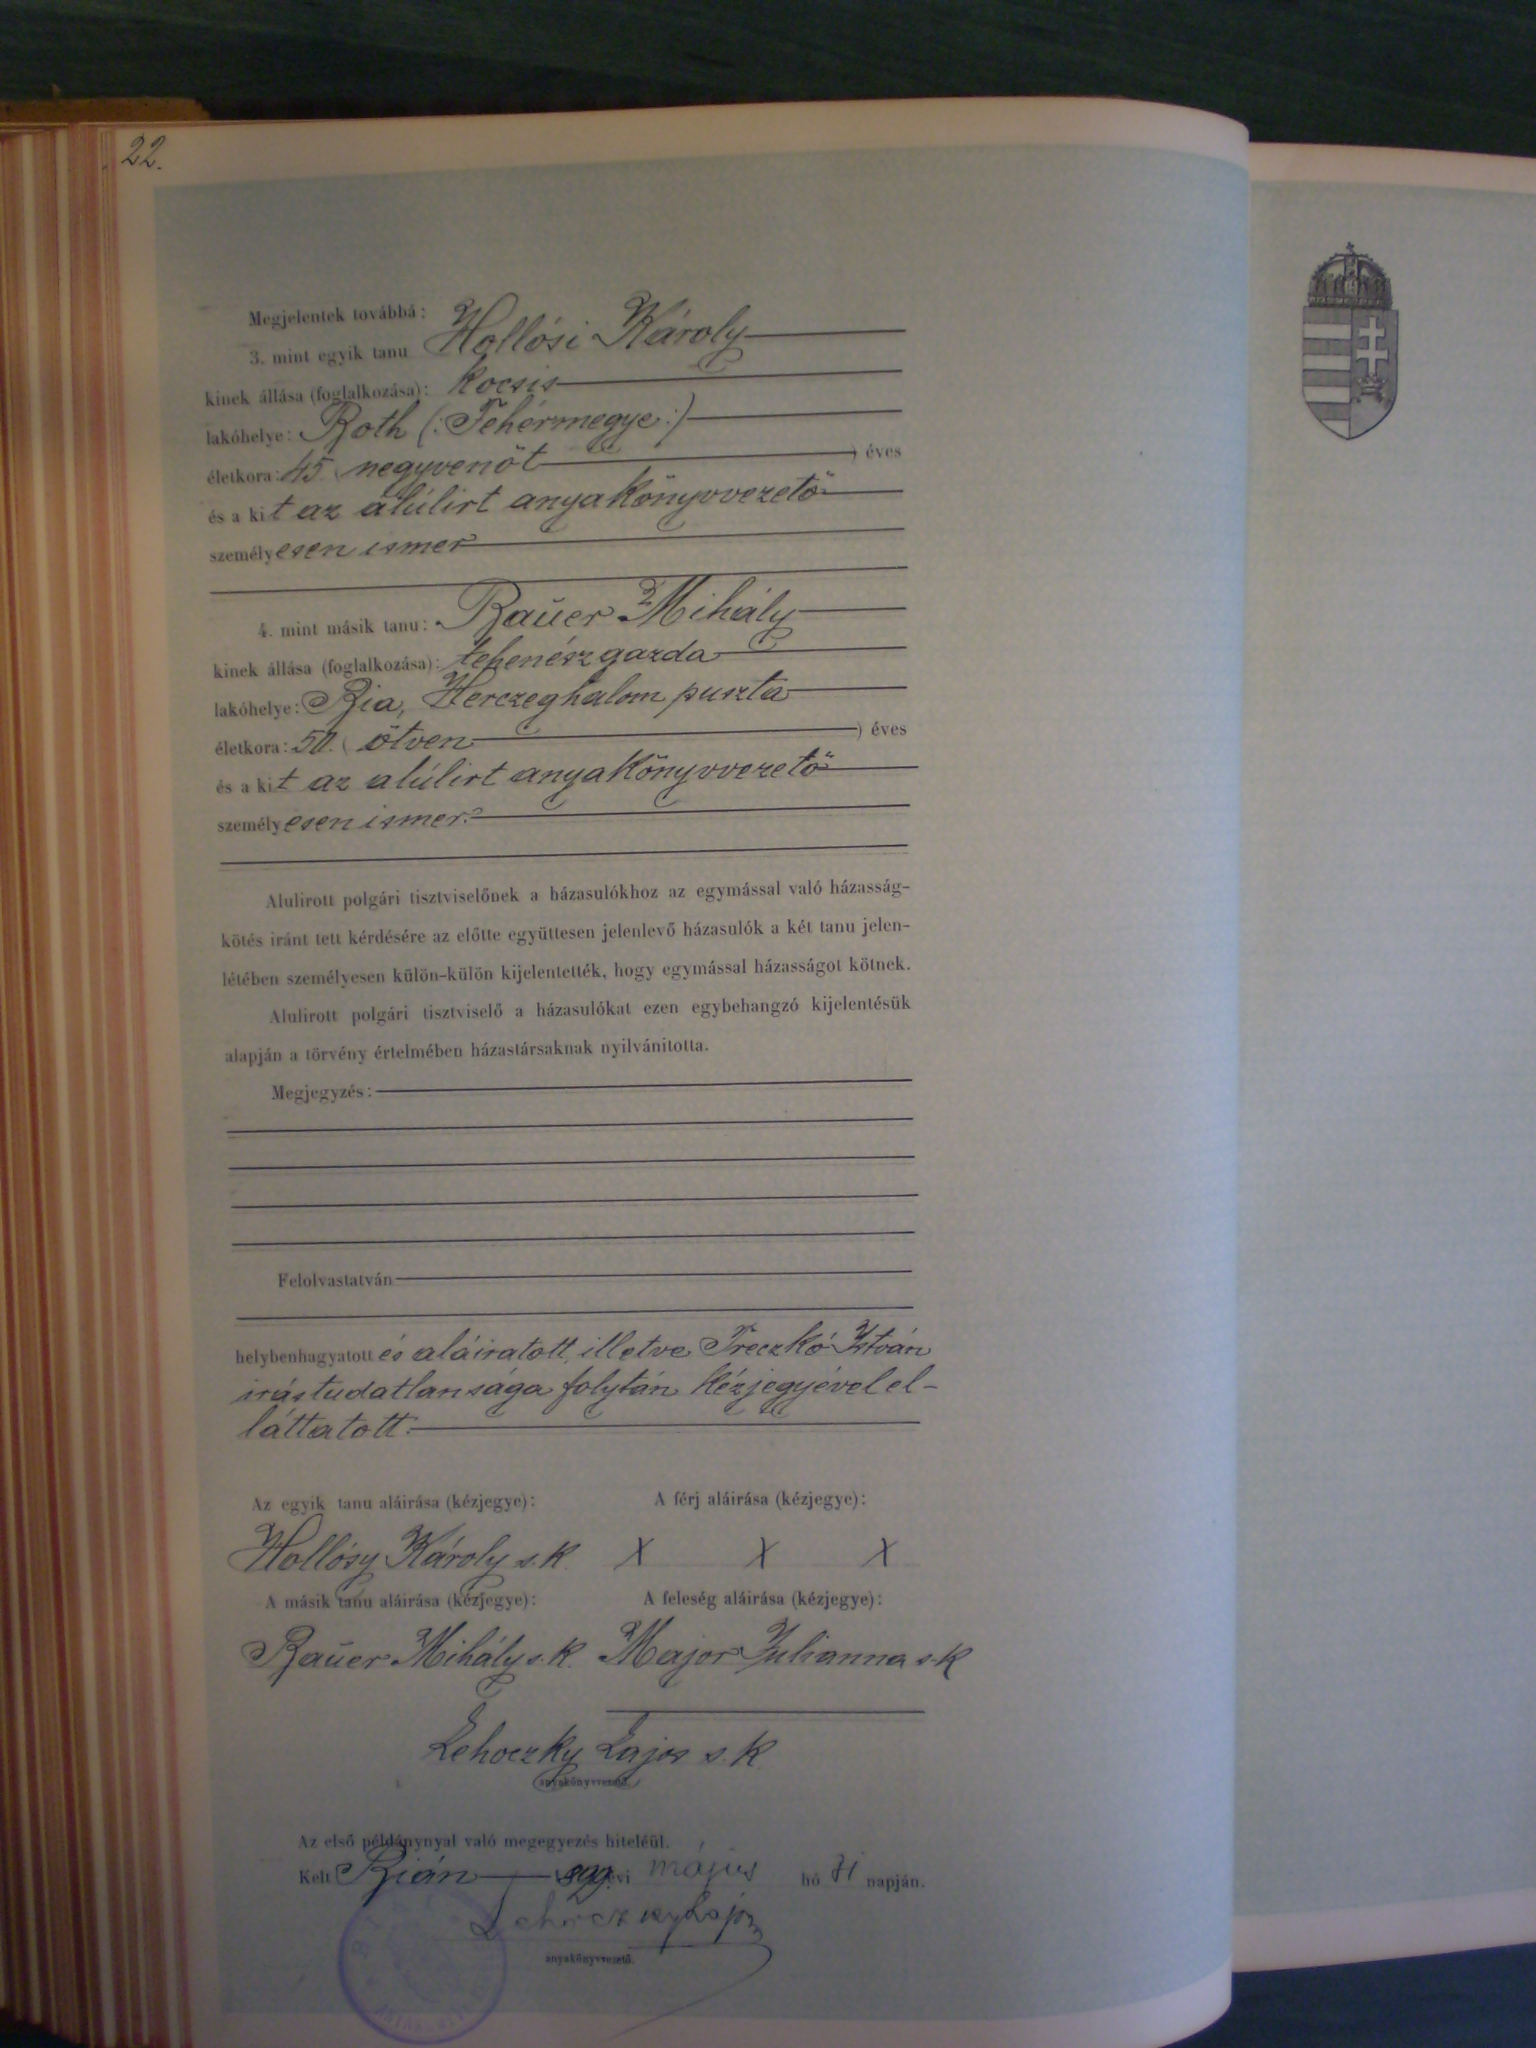 22.
Megjelentek továbbá:
3. mint egyik tanu Hollósi Károly
kinek állása (foglalkozása): kocsis
lakóhelye: Roth (: Fehérmegye :)
életkora: 45. ( negyvenöt ) éves
és a kit az alúlirt anyakönyvvezető
személyesen ismer
4. mint másik tanu: Bauer Mihály
kinek állása (foglalkozása): tehenész gazda
lakóhelye: Bia, Herczeghalom puszta
életkora: 50. ( ötven ) éves
és a kit az alúlirt anyakönyvvezető
személyesen ismer.
Alulirott polgári tisztviselőnek a házasulókhoz az egymással való házasság-
kötés iránt tett kérdésére az előtte együttesen jelenlevő házasulók a két tanu jelen-
létében személyesen külön-külön kijelentették, hogy egymással házasságot kötnek.
Alulirott polgári tisztviselő a házasulókat ezen egybehangzó kijelentésük
alapján a törvény értelmében házastársaknak nyilvánitotta.
Megjegyzés:
Felolvastatván
helybenhagyatott és aláiratott, illetve Treczkó István
irástudatlansága folytán kézjegyével el-
láttatott.
Az egyik tanu aláirása (kézjegye): A férj aláirása (kézjegye):
Hollósy Károly s. k. X X X
A másik tanu aláirása (kézjegye): A feleség aláirása (kézjegye):
Bauer Mihály s. k. Major Julianna s. k
Lehoczky Lajos s. k
anyakönyvvezető.
Az első példánynyal való megegyezés hiteléül.
Kelt Bián évi május hó 31 napján.
Lehoczky Lajos
anyakönyvvezető.